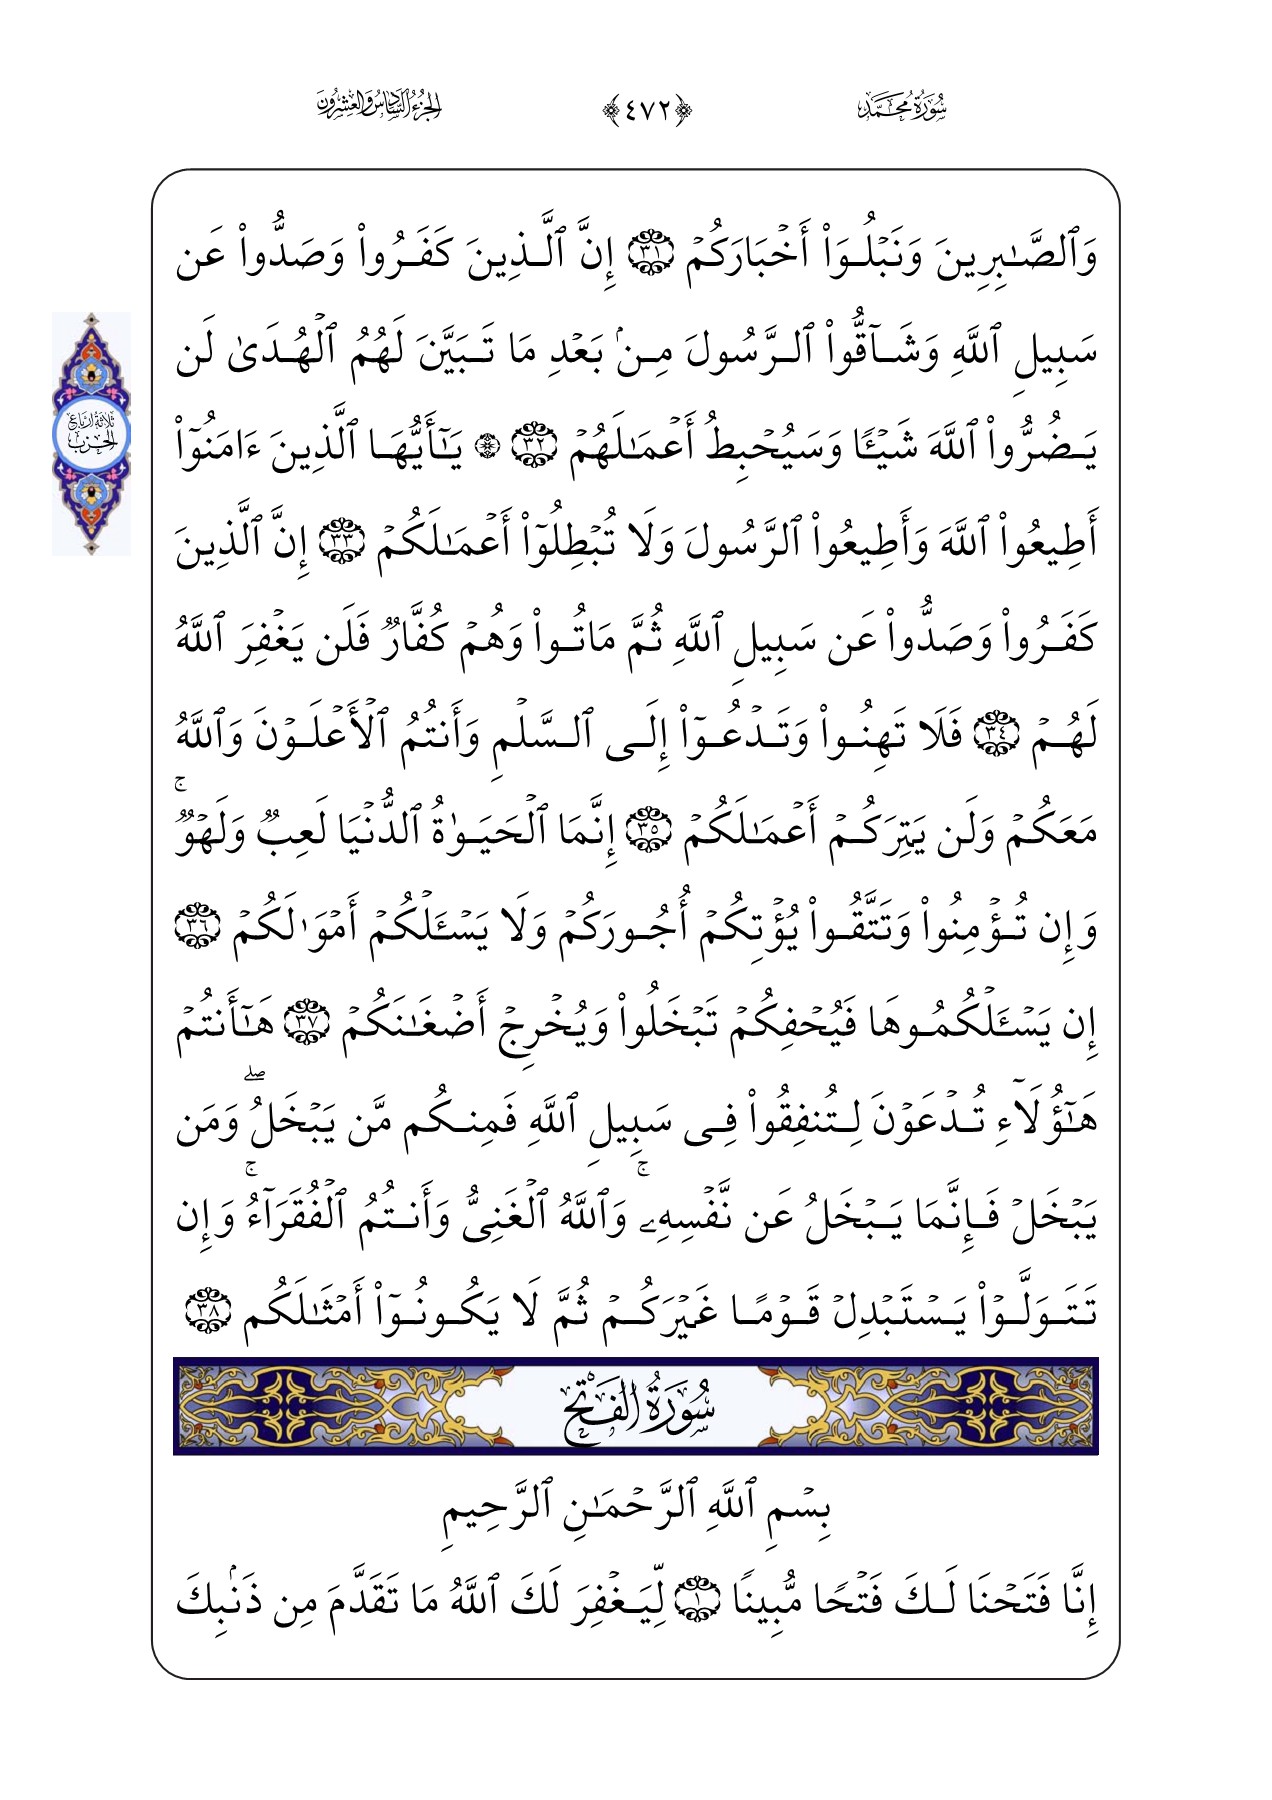 سُورَةُ مُحَمَّد
﴿٤٧٢﴾
الجُزْءُ السَّادِسُ وَالعِشْرُونَ
وَٱلصَّٰبِرِينَ وَنَبۡلُوَاْ أَخۡبَارَكُمۡ ٣١ إِنَّ ٱلَّذِينَ كَفَرُواْ وَصَدُّواْ عَن
سَبِيلِ ٱللَّهِ وَشَآقُّواْ ٱلرَّسُولَ مِنۢ بَعۡدِ مَا تَبَيَّنَ لَهُمُ ٱلۡهُدَىٰ لَن
يَضُرُّواْ ٱللَّهَ شَيۡـٔٗا وَسَيُحۡبِطُ أَعۡمَٰلَهُمۡ ٣٢ ۞ يَٰٓأَيُّهَا ٱلَّذِينَ ءَامَنُوٓاْ
ثَلَاثَةُ أَرْبَاعِ
الحِزْب
أَطِيعُواْ ٱللَّهَ وَأَطِيعُواْ ٱلرَّسُولَ وَلَا تُبۡطِلُوٓاْ أَعۡمَٰلَكُمۡ ٣٣ إِنَّ ٱلَّذِينَ
كَفَرُواْ وَصَدُّواْ عَن سَبِيلِ ٱللَّهِ ثُمَّ مَاتُواْ وَهُمۡ كُفَّارٞ فَلَن يَغۡفِرَ ٱللَّهُ
لَهُمۡ ٣٤ فَلَا تَهِنُواْ وَتَدۡعُوٓاْ إِلَى ٱلسَّلۡمِ وَأَنتُمُ ٱلۡأَعۡلَوۡنَ وَٱللَّهُ
مَعَكُمۡ وَلَن يَتِرَكُمۡ أَعۡمَٰلَكُمۡ ٣٥ إِنَّمَا ٱلۡحَيَوٰةُ ٱلدُّنۡيَا لَعِبٞ وَلَهۡوٞۚ
وَإِن تُؤۡمِنُواْ وَتَتَّقُواْ يُؤۡتِكُمۡ أُجُورَكُمۡ وَلَا يَسۡـَٔلۡكُمۡ أَمۡوَٰلَكُمۡ ٣٦
إِن يَسۡـَٔلۡكُمُوهَا فَيُحۡفِكُمۡ تَبۡخَلُواْ وَيُخۡرِجۡ أَضۡغَٰنَكُمۡ ٣٧ هَٰٓأَنتُمۡ
هَٰٓؤُلَآءِ تُدۡعَوۡنَ لِتُنفِقُواْ فِي سَبِيلِ ٱللَّهِ فَمِنكُم مَّن يَبۡخَلُۖ وَمَن
يَبۡخَلۡ فَإِنَّمَا يَبۡخَلُ عَن نَّفۡسِهِۦۚ وَٱللَّهُ ٱلۡغَنِيُّ وَأَنتُمُ ٱلۡفُقَرَآءُۚ وَإِن
تَتَوَلَّوۡاْ يَسۡتَبۡدِلۡ قَوۡمًا غَيۡرَكُمۡ ثُمَّ لَا يَكُونُوٓاْ أَمۡثَٰلَكُم ٣٨
سُورَةُ الفَتْحِ
بِسۡمِ ٱللَّهِ ٱلرَّحۡمَٰنِ ٱلرَّحِيمِ
إِنَّا فَتَحۡنَا لَكَ فَتۡحٗا مُّبِينٗا ١ لِّيَغۡفِرَ لَكَ ٱللَّهُ مَا تَقَدَّمَ مِن ذَنۢبِكَ